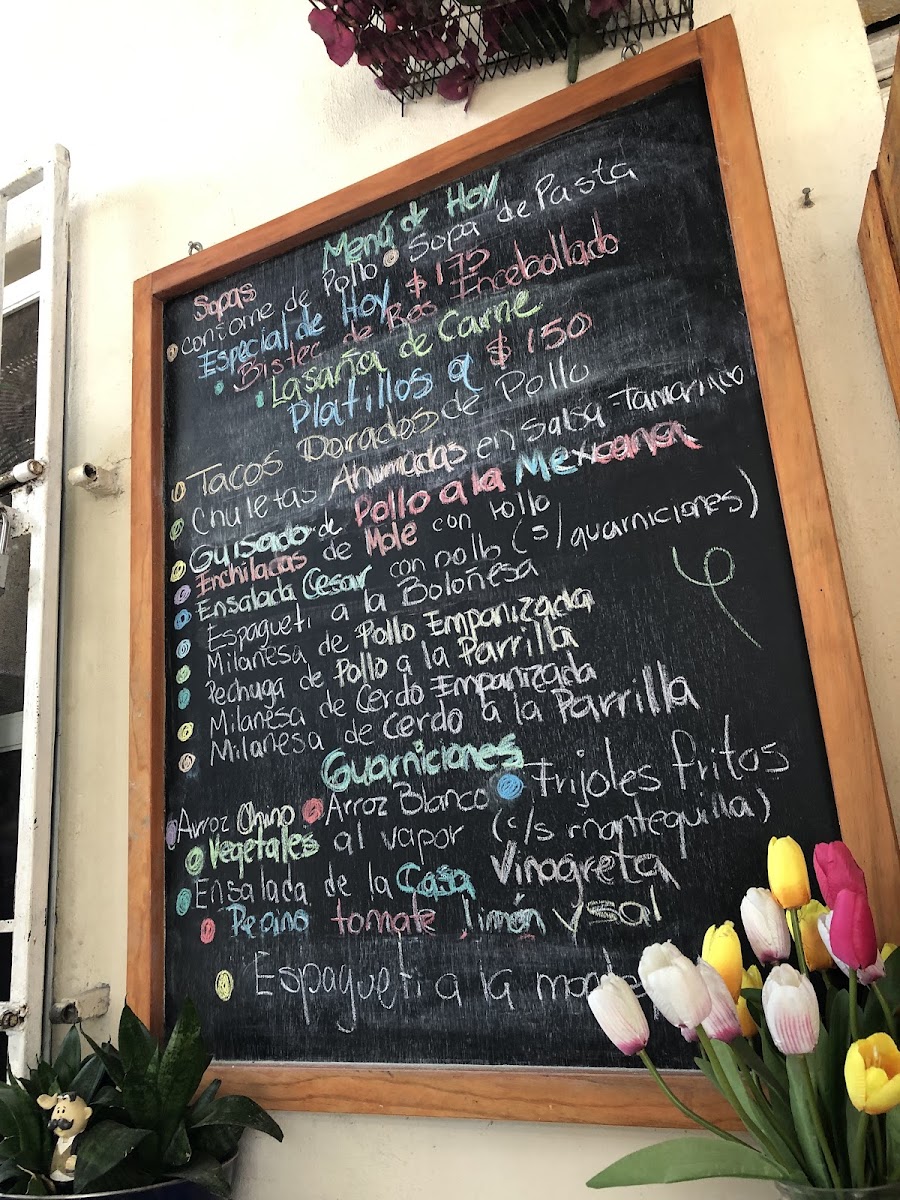 Menú de Hoy
Sopas
consome de Pollo Sopa de Pasta
Especial de Hoy $175
Bistec de Res Encebollado
Lasaña de Carne
Platillos a $150
Tacos Dorados de Pollo
Chuletas Ahumadas en Salsa Tamarindo
Guisado de Pollo a la Mexicana
Enchiladas de Mole con Pollo
Ensalada Cesar con pollo (s/guarniciones)
Espagueti a la Boloñesa
Milanesa de Pollo Empanizada
Pechuga de Pollo a la Parrilla
Milanesa de Cerdo Empanizada
Milanesa de Cerdo a la Parrilla
Guarniciones
Arroz Chino Arroz Blanco Frijoles fritos
Vegetales al vapor (c/s mantequilla)
Ensalada de la Casa Vinagreta
Pepino tomate limón y sal
Espagueti a la